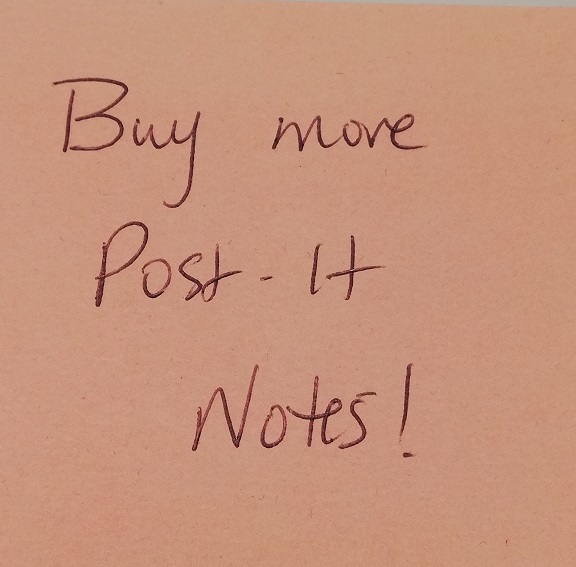 Buy more
Post-It
Notes!